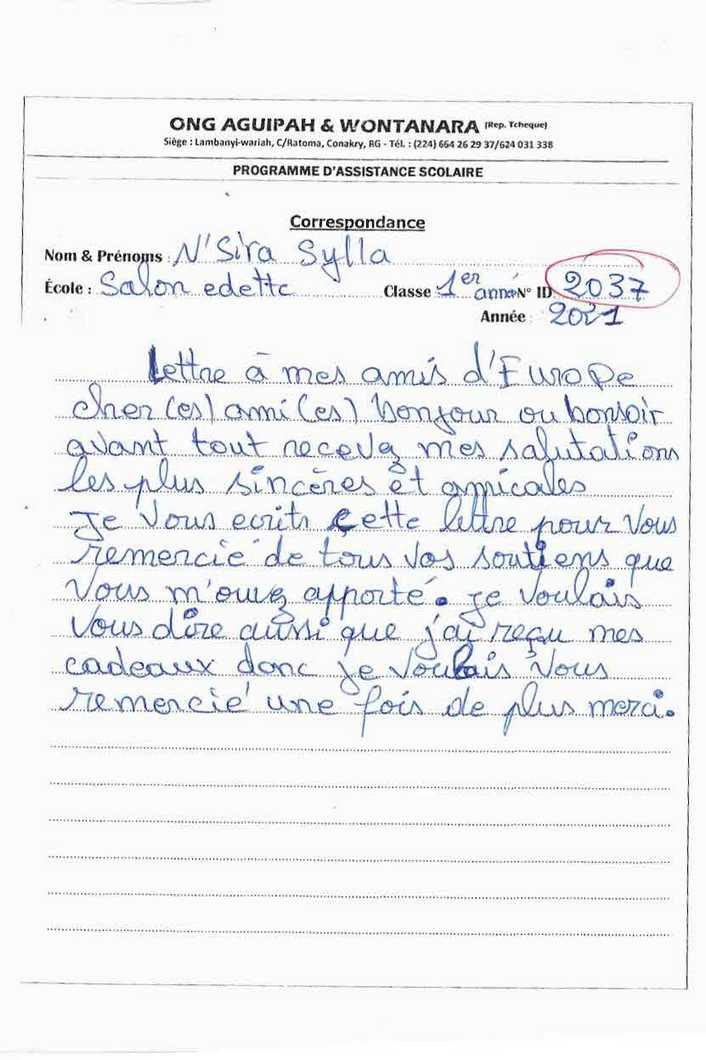 ONG AGUIPAH & WONTANARA (Rep. Tcheque)
Siège : Lambanyi-wariah, C/Ratoma, Conakry, RG - Tél. : (224) 664 26 29 37/624 031 338
PROGRAMME D'ASSISTANCE SCOLAIRE
Correspondance
Nom & Prénoms : N'Sira Sylla
École : Salon edette Classe 1er année N° ID 2037
Année : 2021
Lettre à mes amis d'Europe
cher (es) ami (es) bonjour ou bonsoir
avant tout recevez mes salutations
les plus sincères et amicales
Je vous ecrits cette lettre pour vous
remercié de tous vos soutiens que
vous m'avez apporté. je voulais
vous dire aussi que j'ai reçu mes
cadeaux donc je voulais vous
remercié une fois de plus merci.